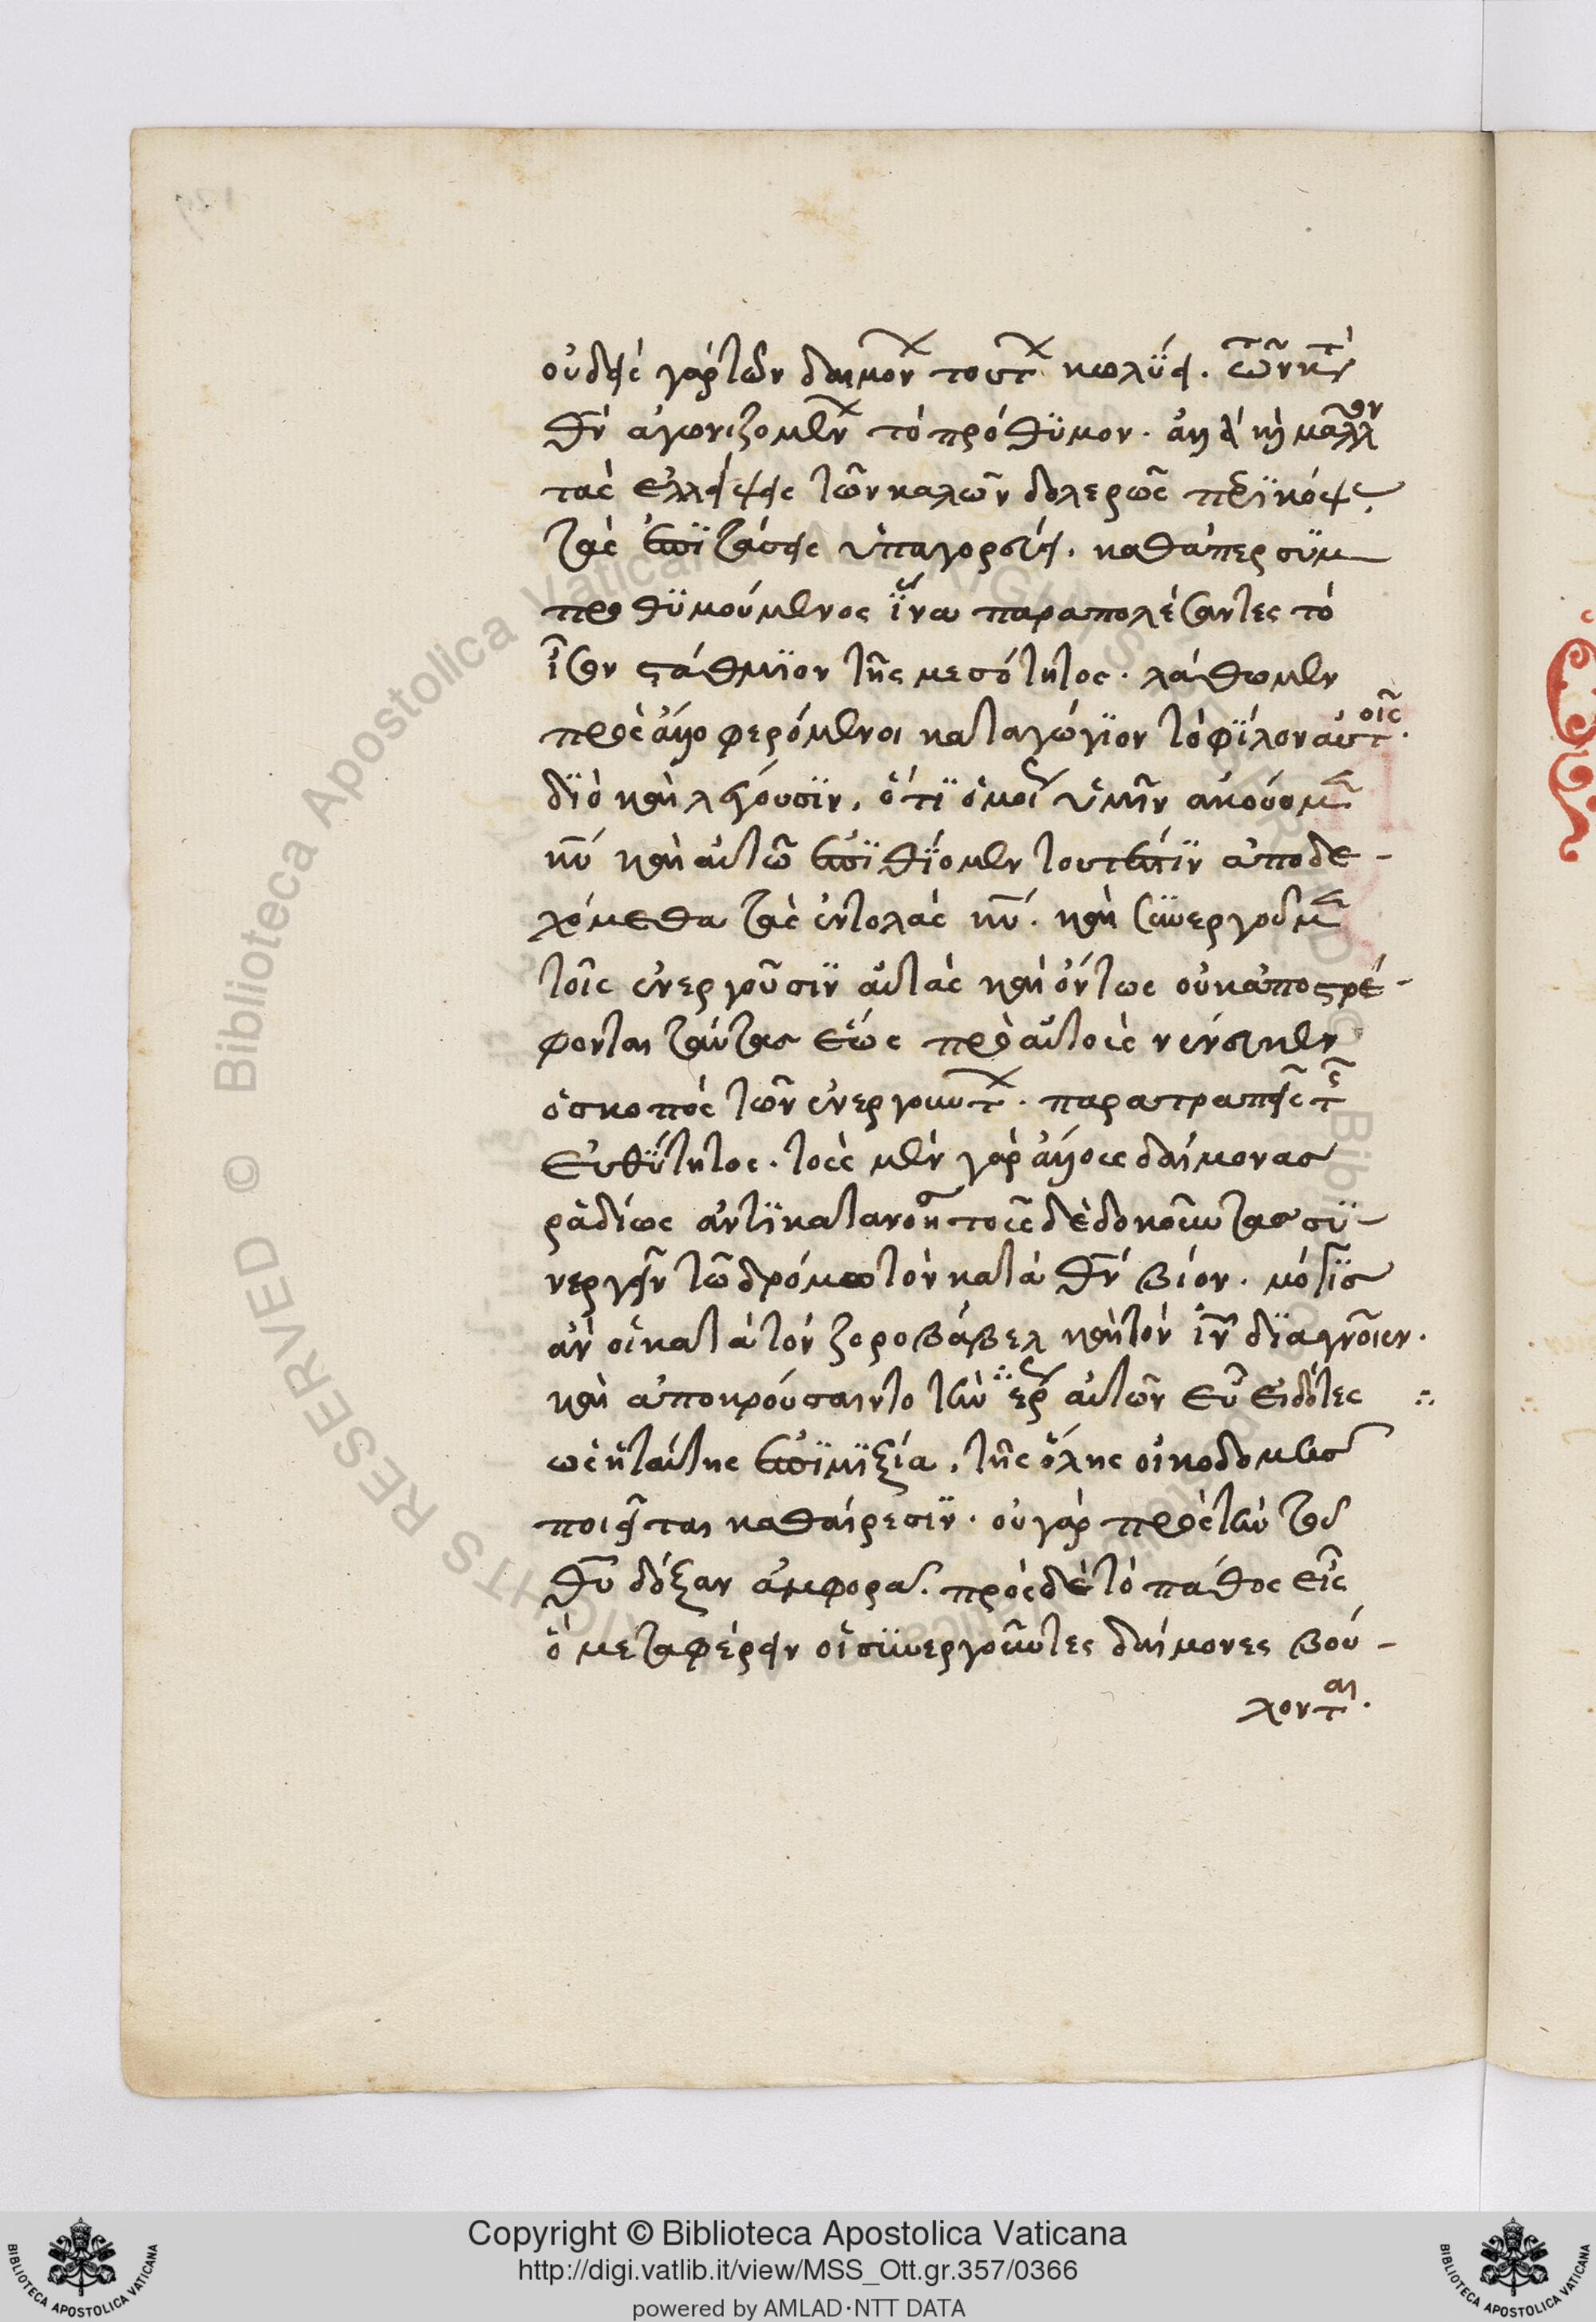 οὐδεὶς γὰρ τῶν δαιμόνων τούτων κωλύει τῶν κατὰ
θν ἀγωνιζομένων τὸ πρόθυμον. ἀλλὰ καὶ μᾶλλον
τὰς ἐλλείψεις τῶν καλῶν δολερῶς περικόψας
τὰς ἐπιτάσεις ὑπαγορεύει. καθάπερ συμ
προθυμούμενος ἵνα παραπολέσαντες τὸ
ἴσον στάθμιον τῆς μεσότητος. λάθωμεν
πρὸς ἄλλο φερόμενοι καταγώγιον τὸ φίλον αὐτοῖς.
διὸ καὶ λέγουσιν, ὅτι ὁμοίως ὑμῖν ἀκούομεν
κυ καὶ αὐτῶ ἐπιθύομεν τουτέστιν ἀποδε-
χόμεθα τὰς ἐντολὰς κυ. καὶ συνεργοῦμεν
τοῖς ἐνεργοῦσιν αὐτὰς καὶ ὄντως οὐκ ἀποστρέ-
φονται ταύτας ἕως πρὸς αὐτοὺς νένευκεν
ὁ σκοπὸς τῶν ἐνεργούντων. παρατραπεὶς τῆς
εὐθύτητος. τοὺς μὲν γὰρ ἄλλους δαίμονας
ῥαδίως ἄν τι κατανοῆ τοὺς δὲ δοκοῦντας συ-
νεργεῖν τῶ δρόμω τὸν κατὰ θν βίον. μόλις
ἂν οἱ κατὰ τὸν ζοροβάβελ καὶ τὸν ιν διαγνοῖεν.
καὶ ἀποκρούσαιντο τὴν αὐτῶν εὖ εἰδότες :·
ὡς ἡ ταύτης ἐπιμιξία, τῆς ὅλης οἰκοδομῆς
ποιεῖται καθαίρεσιν. οὐ γὰρ πρὸς τὴν τοῦ
θυ δόξαν ἀμφορα. πρὸς δὲ τὸ πάθος εἰς
ὃ μεταφέρειν οἱ συνεργοῦντες δαίμονες βού-
λονται.
Copyright © Biblioteca Apostolica Vaticana
http://digi.vatlib.it/view/MSS_Ott.gr.357/0366
powered by AMLAD·NTT DATA